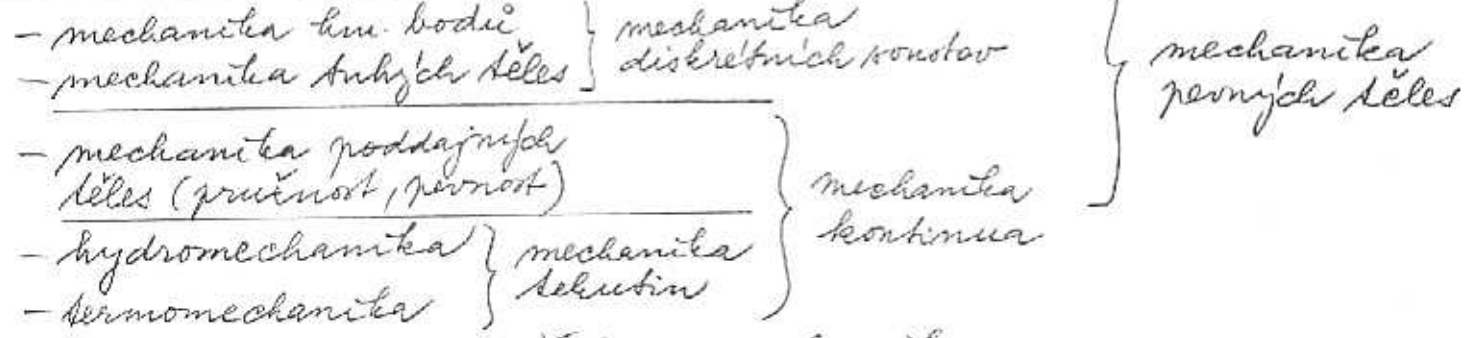 - mechanika hm. bodů
- mechanika tuhých těles
mechanika
diskrétních soustav
- mechanika poddajných
těles (pružnost, pevnost)
- hydromechanika
- termomechanika
mechanika
tekutin
mechanika
kontinua
mechanika
pevných těles